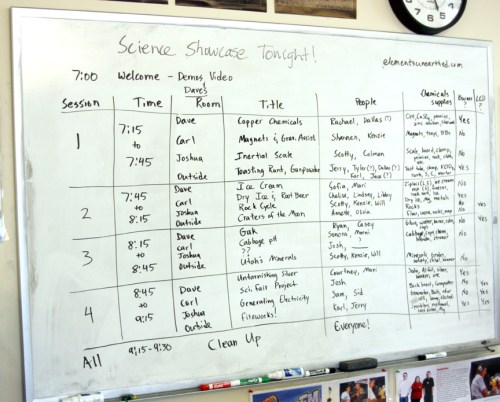 Science Showcase Tonight!
elementsunearthed.com
7:00 Welcome - Demos, Video
Session Time Dave's Room Title People Chemicals supplies Burner ? LCD ?
1 7:15 to 7:45
Dave Copper Chemicals Rachael, Dallas (?) Yes
Carl Magnets & Shannen, Kenzie Magnets, trays, BBs No
Joshua Inertial Scale Scotty, Colman No
Outside Toasting Runt, Gunpowder Jerry, Tyler(?), Dallas(?) Karl, Jace(?) Yes
2 7:45 to 8:15
Dave Ice Cream Sofia, Mari No
Carl Dry Ice & Root Beer Chelsie, Lindsey, Libby No
Joshua Rock Cycle Scotty, Kenzie, Will Rocks
Outside Craters of the Moon Annette, Olivia No Yes
3 8:15 to 8:45
Dave Gak Ryan, Casey No
Carl Cabbage pH Sonora, Marni No
Joshua ?? Josh, ?
Outside Utah's Minerals Scotty, Kenzie, Will Minerals No
4 8:45 to 9:15
Dave Untarnishing Silver Courtney, Mari Yes
Carl Sci. Fair Project Josh No Yes
Joshua Generating Electricity Sam, Sid No
Outside Fireworks! Karl, Jerry Yes
All 9:15-9:30 Clean Up Everyone!